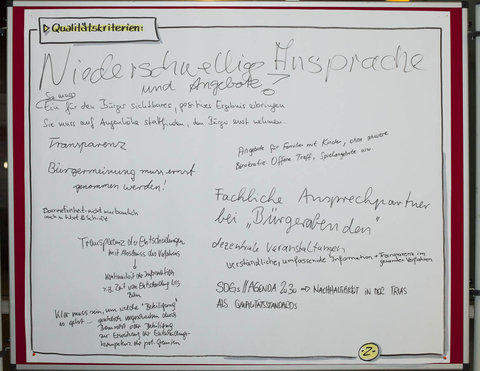 ▷ Qualitätskriterien:
Niederschwellige Ansprache
und Angebote?
Sie muss
Ein für den Bürger sichtbares, positives Ergebnis erbringen
Sie muss auf Augenhöhe stattfinden, den Bürger ernst nehmen.
Transparenz
Bürgermeinung muss ernst
genommen werden!
Barrierefreiheit - nicht nur baulich
auch in Wort & Schrift
Transparenz der Entscheidungen
mit Abschluss des Verfahrens
Kontinuität der Information
z.B. Zeit von Entscheidung bis
Klar muss sein, um welche "Beteiligung"
es geht ... gesetzlich vorgeschrieben
oder Beteiligung
zur Erweiterung der Entscheidungs-
kompetenz der pol. Gremien
Angebote für Familien mit Kinder, ohne
Bürokratie. Offene Treff, Spielangebote usw.
Fachliche Ansprechpartner
bei "Bürgerabenden"
dezentrale Veranstaltungen
verständliche, umfassende Information + Transparenz im
gesamten Verfahren
SDGs // AGENDA 2030 ⇒ NACHHALTIGKEIT IN DER
ALS QUALITÄTSSTANDARDS
-2-